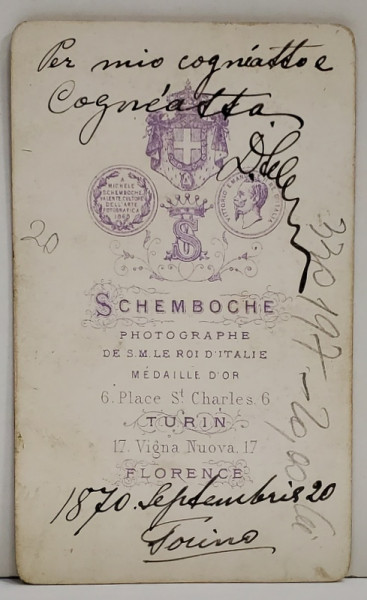 Per mio cognéatto e
Cognéatta
A
MICHELE
SCHEMBOCHE
VALENTE CULTORE
DELL'ARTE
FOTOGRAFICA
VITTORIO EMANUELE D'ITALIA
20
S
SCHEMBOCHE
PHOTOGRAPHE
DE S.M. LE ROI D'ITALIE
MÉDAILLE D'OR
6. Place St Charles. 6
TURIN
17. Vigna Nuova. 17
FLORENCE
1870. Septembris 20
Torino